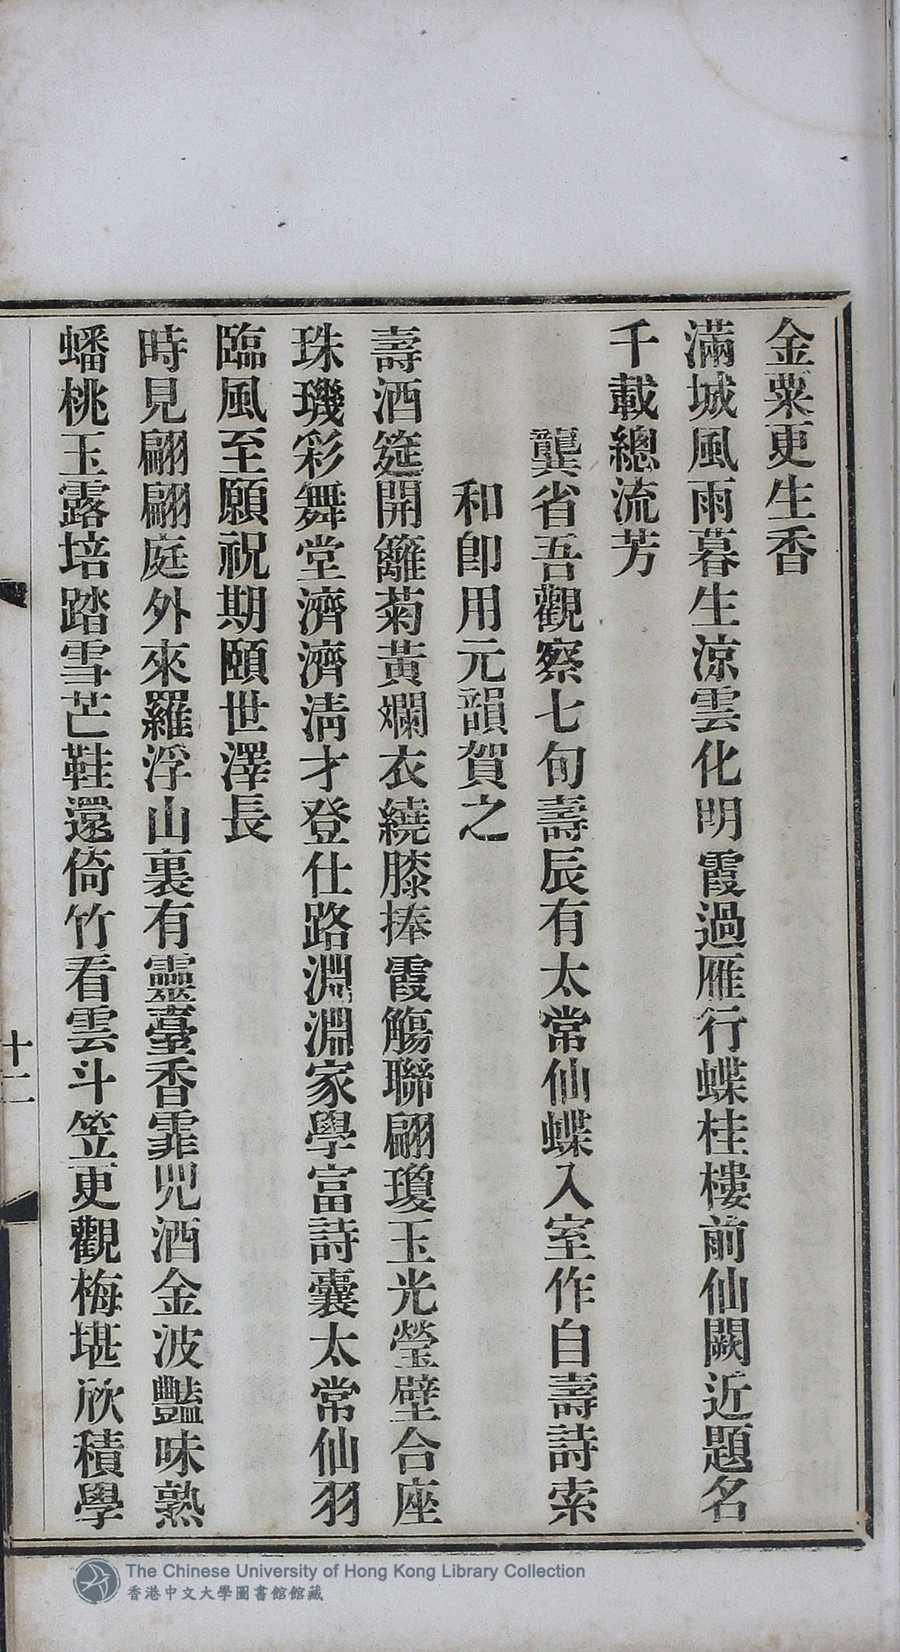 金粟更生香
滿城風雨暮生涼雲化明霞過雁行蝶桂樓前仙闕近題名
千載總流芳
龔省吾觀察七旬壽辰有太常仙蝶入室作自壽詩索
和卽用元韻賀之
壽酒筵開籬菊黃斕衣繞膝捧霞觴聯翩瓊玉光瑩壁合座
珠璣彩舞堂濟濟淸才登仕路淵淵家學富詩囊太常仙羽
臨風至願祝期頤世澤長
時見翩翩庭外來羅浮山裏有靈臺香霏兕酒金波豔味熟
蟠桃玉露培踏雪芒鞋還倚竹看雲斗笠更觀梅堪欣積學
十二
The Chinese University of Hong Kong Library Collection
香港中文大學圖書館館藏